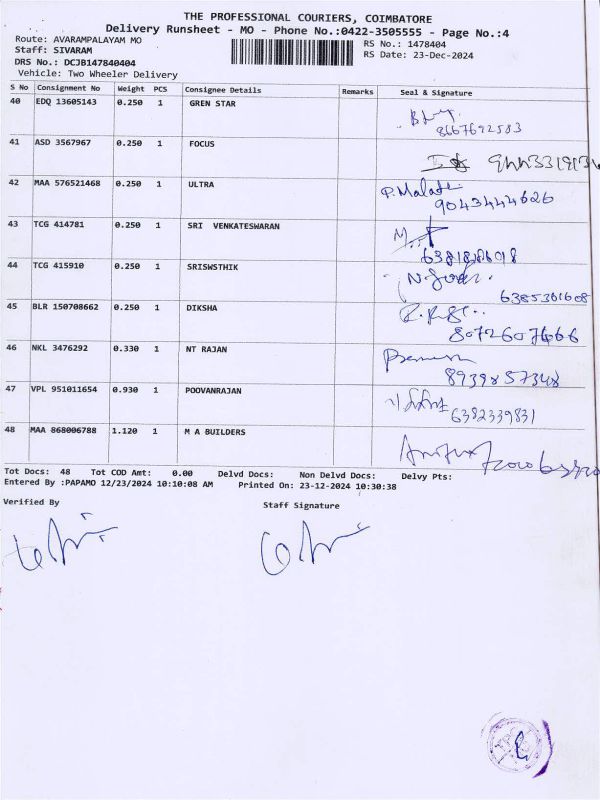 THE PROFESSIONAL COURIERS, COIMBATORE
Delivery Runsheet - MO - Phone No.:0422-3505555 - Page No.:4
Route: AVARAMPALAYAM MO
RS No.: 1478404
Staff: SIVARAM
RS Date: 23-Dec-2024
DRS No.: DCJB147840404
Vehicle: Two Wheeler Delivery
S No Consignment No Weight PCS Consignee Details Remarks Seal & Signature
40 EDQ 13605143 0.250 1 GREN STAR
8667692583
41 ASD 3567967 0.250 1 FOCUS
42 MAA 576521468 0.250 1 ULTRA P.Malathi
9043444626
43 TCG 414781 0.250 1 SRI VENKATESWARAN
44 TCG 415910 0.250 1 SRISWSTHIK
6385361608
45 BLR 150708662 0.250 1 DIKSHA
8072607666
46 NKL 3476292 0.330 1 NT RAJAN
8939857348
47 VPL 951011654 0.930 1 POOVANRAJAN
6382339831
48 MAA 868006788 1.120 1 M A BUILDERS
Tot Docs: 48 Tot COD Amt: 0.00 Delvd Docs: Non Delvd Docs: Delvy Pts:
Entered By :PAPAMO 12/23/2024 10:10:08 AM Printed On: 23-12-2024 10:30:38
Verified By
Staff Signature